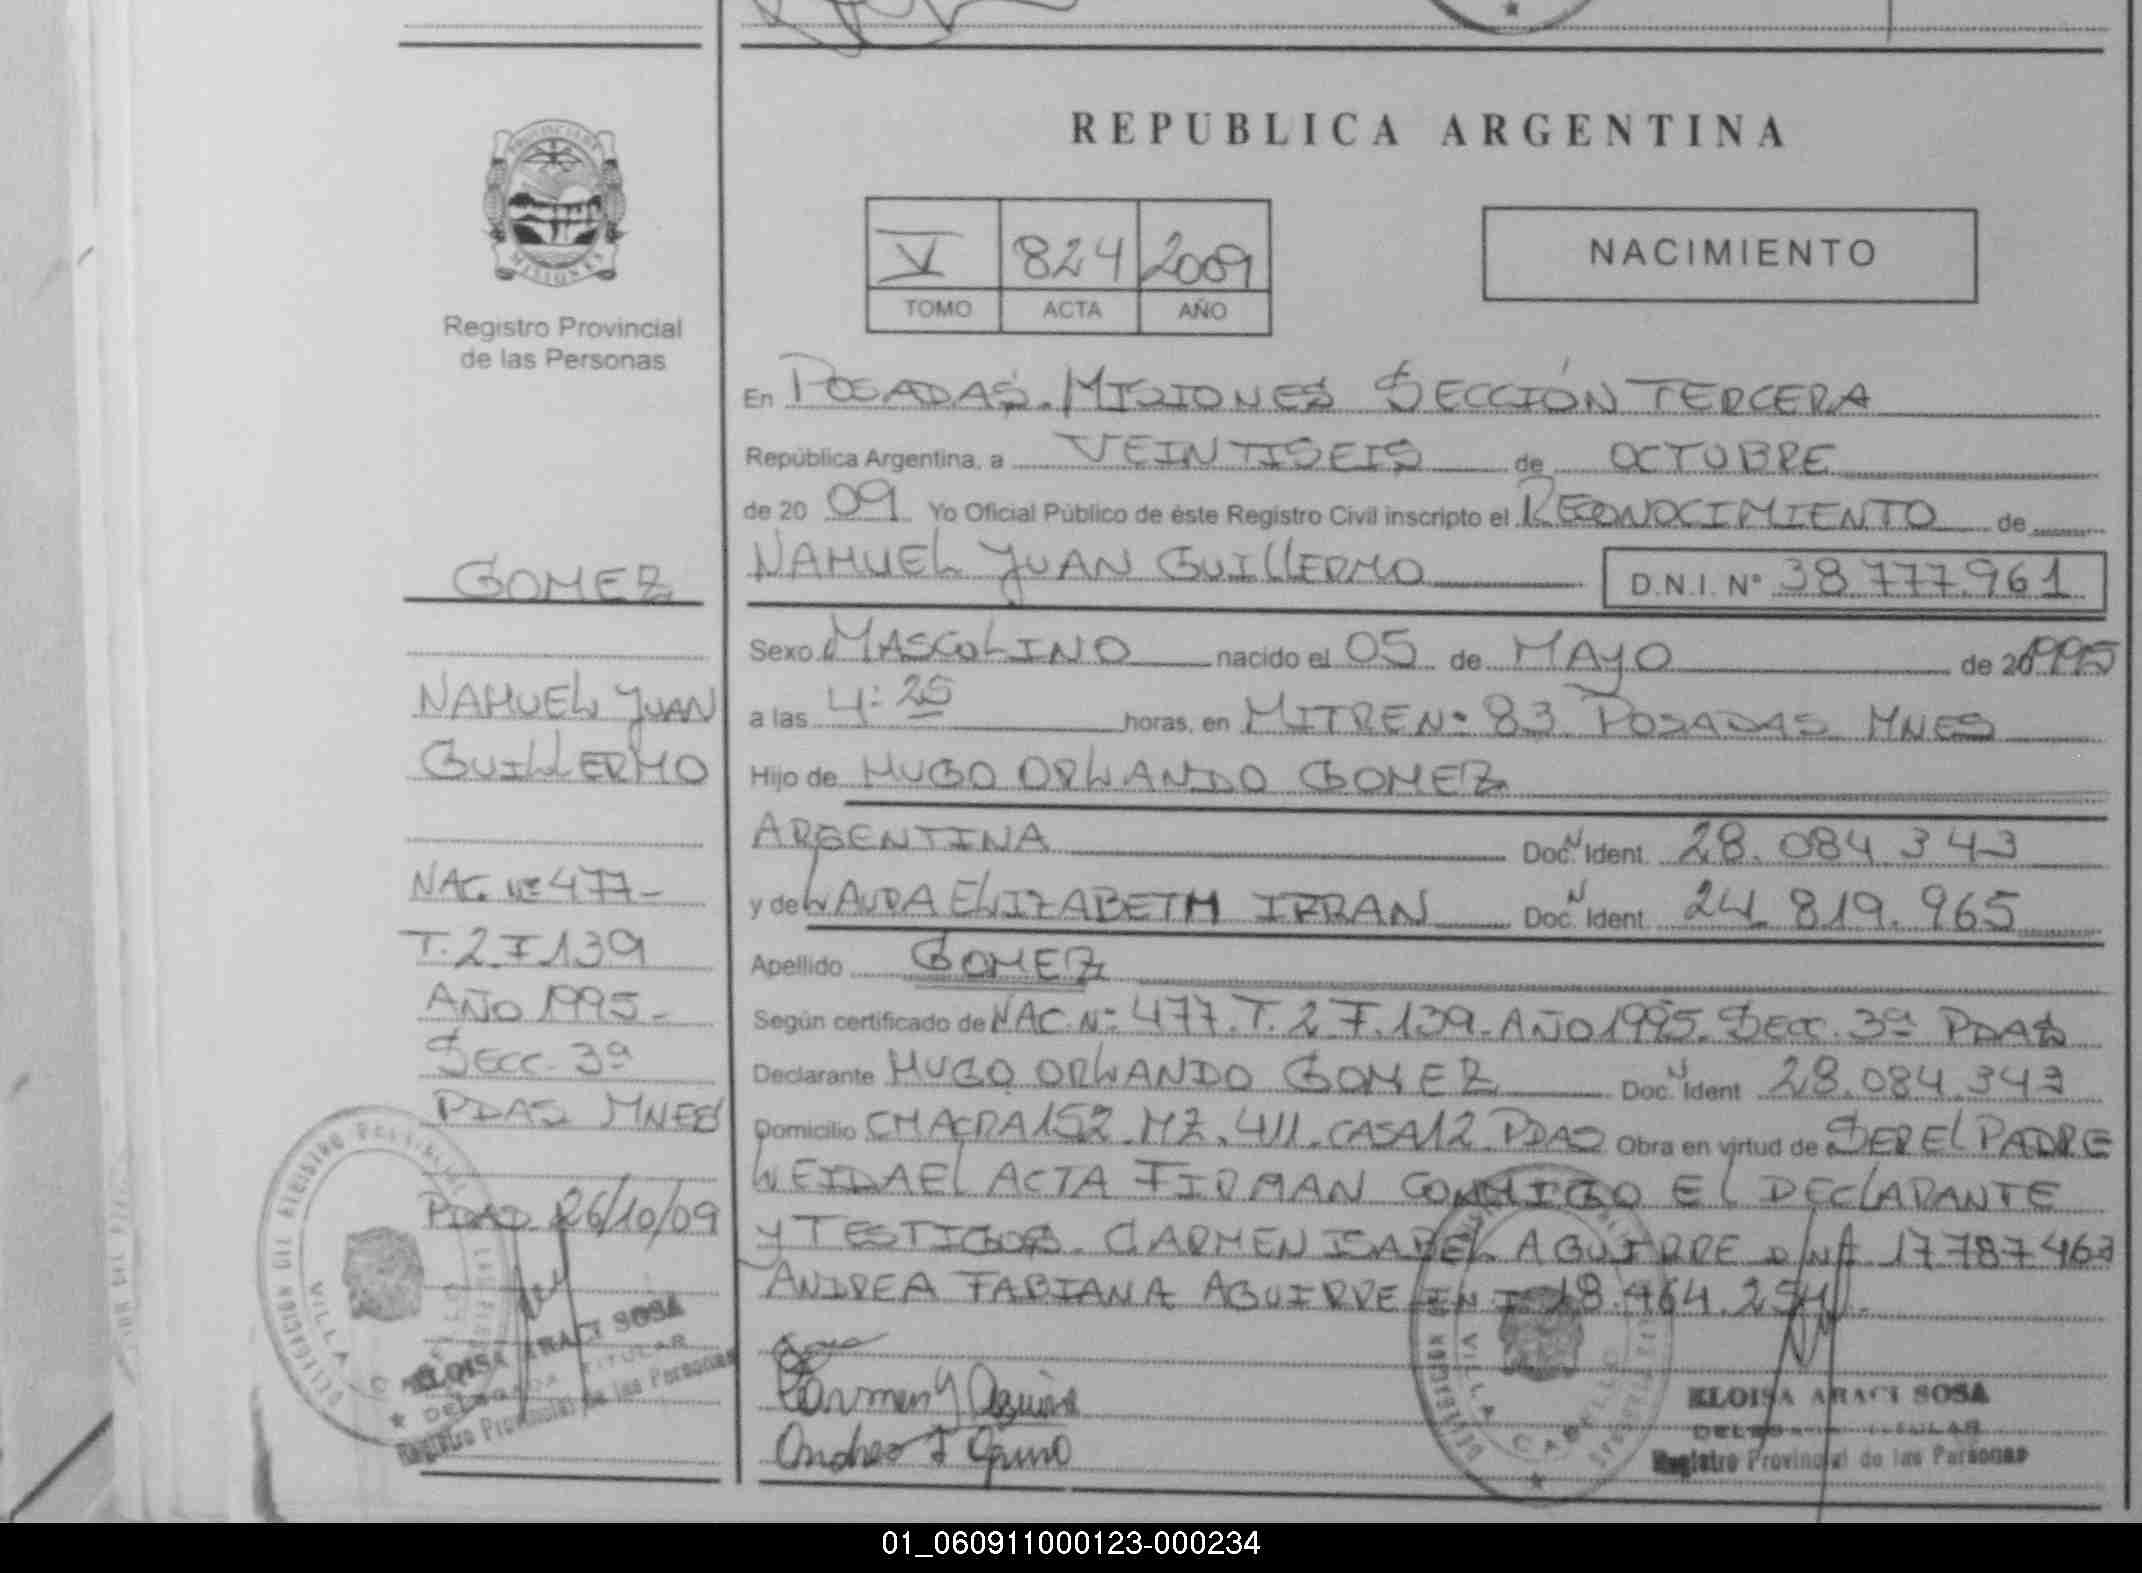 REPUBLICA ARGENTINA
V 824 2009
TOMO ACTA AÑO
NACIMIENTO
PROVINCIA DE
MISIONES
Registro Provincial
de las Personas
GOMEZ
NAHUEL JUAN
GUILLERMO
NAC. Nº 477-
T. 2 F 139
AÑO 1995-
SECC. 3ª
PDAS MNES
PDAS 26/10/09
ELOISA ARACI SOSA
DELEGADA TITULAR
Registro Provincial de las Personas
En POSADAS. MISIONES SECCIÓN TERCERA
República Argentina, a VEINTISEIS de OCTUBRE
de 20 09 Yo Oficial Público de éste Registro Civil inscripto el RECONOCIMIENTO de
NAHUEL JUAN GUILLERMO D.N.I. Nº 38.777.961
Sexo MASCULINO nacido el 05 de MAYO de 1995
a las 4:25 horas, en MITRE Nº 83 POSADAS MNES
Hijo de HUGO ORLANDO GOMEZ
ARGENTINA Doc. N Ident. 28.084.343
y de LAURA ELIZABETH IRRAN Doc. N Ident. 24.819.965
Apellido GOMEZ
Según certificado de NAC. Nº 477. T. 2 F. 139. AÑO 1995. SECC. 3ª PDAS
Declarante HUGO ORLANDO GOMEZ Doc. N Ident 28.084.343
Domicilio CHACRA 152 MZ. 411. CASA 12 PDAS Obra en virtud de SER EL PADRE
LEIDA EL ACTA FIRMAN CONMIGO EL DECLARANTE
Y TESTIGOS. CARMEN ISABEL AGUIRRE DNI 17787463
ANDREA FABIANA AGUIRRE DNI 18.464.254
Carmen Y Aguirre
Andrea F Aguirre
VILLA CABELLO
ELOISA ARACI SOSA
DELEGADA TITULAR
Registro Provincial de las Personas
01_060911000123-000234